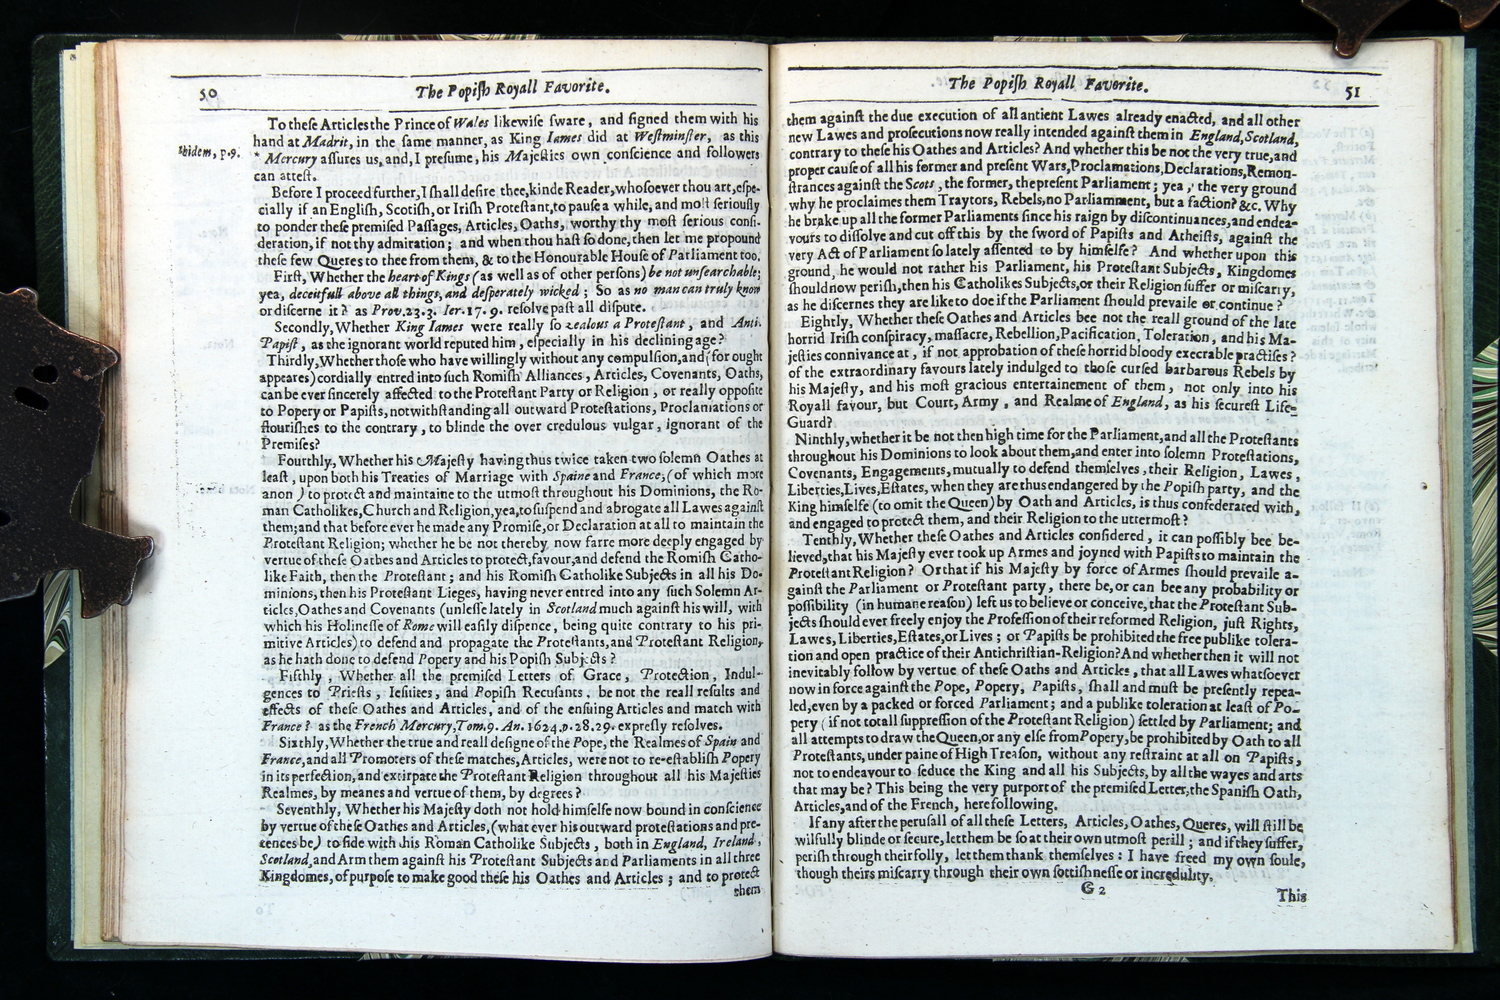 50
The Popiſh Royall Favorite.
To theſe Articles the Prince of Wales likewiſe ſware, and ſigned them with his
hand at Madrit, in the ſame manner, as King Iames did at Weſtminſter, as this
Ibidem, p.9.
* Mercury aſſures us, and, I preſume, his Majeſties own conſcience and followers
can atteſt.
Before I proceed further, I ſhall deſire thee, kinde Reader, whoſoever thou art, eſpe-
cially if an Engliſh, Scotiſh, or Iriſh Proteſtant, to pauſe a while, and moſt ſeriouſly
to ponder theſe premiſed Paſſages, Articles, Oaths, worthy thy moſt ſerious conſi-
deration, if not thy admiration; and when thou haſt ſo done, then let me propound
theſe few Queres to thee from them, & to the Honourable Houſe of Parliament too.
Firſt, Whether the heart of Kings (as well as of other perſons) be not unſearchable;
yea, deceitfull above all things, and deſperately wicked; So as no man can truly know
or diſcerne it? as Prov.23.3. Ier.17.9. reſolve paſt all diſpute.
Secondly, Whether King Iames were really ſo zealous a Proteſtant, and Anti-
Papiſt, as the ignorant world reputed him, eſpecially in his declining age?
Thirdly, Whether thoſe who have willingly without any compulſion, and (for ought
appeares) cordially entred into ſuch Romiſh Alliances, Articles, Covenants, Oaths,
can be ever ſincerely affected to the Proteſtant Party or Religion, or really oppoſite
to Popery or Papiſts, notwithſtanding all outward Proteſtations, Proclamations or
flouriſhes to the contrary, to blinde the over credulous vulgar, ignorant of the
Premiſes?
Fourthly, Whether his Majeſty having thus twice taken two ſolemn Oathes at
leaſt, upon both his Treaties of Marriage with Spaine and France, (of which more
anon) to protect and maintaine to the utmoſt throughout his Dominions, the Ro-
man Catholikes, Church and Religion, yea, to ſuſpend and abrogate all Lawes againſt
them; and that before ever he made any Promiſe, or Declaration at all to maintain the
Proteſtant Religion; whether he be not thereby now farre more deeply engaged by
vertue of theſe Oathes and Articles to protect, favour, and defend the Romiſh Catho-
like Faith, then the Proteſtant; and his Romiſh Catholike Subjects in all his Do-
minions, then his Proteſtant Lieges, having never entred into any ſuch Solemn Ar-
ticles, Oathes and Covenants (unleſſe lately in Scotland much againſt his will, with
which his Holineſſe of Rome will eaſily diſpence, being quite contrary to his pri-
mitive Articles) to defend and propagate the Proteſtants, and Proteſtant Religion,
as he hath done to defend Popery and his Popiſh Subjects?
Fifthly, Whether all the premiſed Letters of Grace, Protection, Indul-
gences to Prieſts, Ieſuites, and Popiſh Recuſants, be not the reall reſults and
effects of theſe Oathes and Articles, and of the enſuing Articles and match with
France? as the French Mercury, Tom.9. An. 1624.p.28.29. expreſly reſolves.
Sixthly, Whether the true and reall deſigne of the Pope, the Realmes of Spain and
France, and all Promoters of theſe matches, Articles, were not to re-eſtabliſh Popery
in its perfection, and extirpate the Proteſtant Religion throughout all his Majeſties
Realmes, by meanes and vertue of them, by degrees?
Seventhly, Whether his Majeſty doth not hold himſelfe now bound in conſcience
by vertue of theſe Oathes and Articles, (what ever his outward proteſtations and pre-
tences be) to ſide with his Roman Catholike Subjects, both in England, Ireland,
Scotland, and Arm them againſt his Proteſtant Subjects and Parliaments in all three
Kingdomes, of purpoſe to make good theſe his Oathes and Articles; and to protect
them
The Popiſh Royall Favorite.
51
them againſt the due execution of all antient Lawes already enacted, and all other
new Lawes and proſecutions now really intended againſt them in England, Scotland,
contrary to theſe his Oathes and Articles? And whether this be not the very true, and
proper cauſe of all his former and preſent Wars, Proclamations, Declarations, Remon-
ſtrances againſt the Scots, the former, the preſent Parliament; yea, the very ground
why he proclaimes them Traytors, Rebels, no Parliament, but a faction? &c. Why
he brake up all the former Parliaments ſince his raign by diſcontinuances, and endea-
vours to diſſolve and cut off this by the ſword of Papiſts and Atheiſts, againſt the
very Act of Parliament ſo lately aſſented to by himſelfe? And whether upon this
ground, he would not rather his Parliament, his Proteſtant Subjects, Kingdomes
ſhould now periſh, then his Catholikes Subjects, or their Religion ſuffer or miſcarry,
as he diſcernes they are like to doe if the Parliament ſhould prevaile or continue?
Eightly, Whether theſe Oathes and Articles bee not the reall ground of the late
horrid Iriſh conſpiracy, maſſacre, Rebellion, Pacification, Toleration, and his Ma-
jeſties connivance at, if not approbation of theſe horrid bloody execrable practiſes?
of the extraordinary favours lately indulged to thoſe curſed barbarous Rebels by
his Majeſty, and his moſt gracious entertainement of them, not only into his
Royall favour, but Court, Army, and Realme of England, as his ſecureſt Life-
Guard?
Ninthly, whether it be not then high time for the Parliament, and all the Proteſtants
throughout his Dominions to look about them, and enter into ſolemn Proteſtations,
Covenants, Engagements, mutually to defend themſelves, their Religion, Lawes,
Liberties, Lives, Eſtates, when they are thus endangered by the Popiſh party, and the
King himſelfe (to omit the Queen) by Oath and Articles, is thus confederated with,
and engaged to protect them, and their Religion to the uttermoſt?
Tenthly, Whether theſe Oathes and Articles conſidered, it can poſſibly bee be-
lieved, that his Majeſty ever took up Armes and joyned with Papiſts to maintain the
Proteſtant Religion? Or that if his Majeſty by force of Armes ſhould prevaile a-
gainſt the Parliament or Proteſtant party, there be, or can bee any probability or
poſſibility (in humane reaſon) left us to believe or conceive, that the Proteſtant Sub-
jects ſhould ever freely enjoy the Profeſſion of their reformed Religion, juſt Rights,
Lawes, Liberties, Eſtates, or Lives; or Papiſts be prohibited the free publike tolera-
tion and open practice of their Antichriſtian-Religion? And whether then it will not
inevitably follow by vertue of theſe Oaths and Articles, that all Lawes whatſoever
now in force againſt the Pope, Popery, Papiſts, ſhall and muſt be preſently repea-
led, even by a packed or forced Parliament; and a publike toleration at leaſt of Po-
pery (if not totall ſuppreſſion of the Proteſtant Religion) ſettled by Parliament; and
all attempts to draw the Queen, or any elſe from Popery, be prohibited by Oath to all
Proteſtants, under paine of High Treaſon, without any reſtraint at all on Papiſts,
not to endeavour to ſeduce the King and all his Subjects, by all the wayes and arts
that may be? This being the very purport of the premiſed Letter, the Spaniſh Oath,
Articles, and of the French, here following.
If any after the peruſall of all theſe Letters, Articles, Oathes, Queres, will ſtill be
wilfully blinde or ſecure, let them be ſo at their own utmoſt perill; and if they ſuffer,
periſh through their folly, let them thank themſelves: I have freed my own ſoule,
though theirs miſcarry through their own ſottiſhneſſe or incredulity.
G 2
This